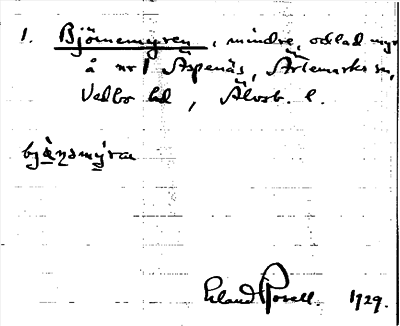 1. Björnemyren, mindre, odlad myr
å nr 1 Aspenäs, Ärtemarks sn,
Vedbo hd, Älvsb. l.
Erland Rosell. 1929.